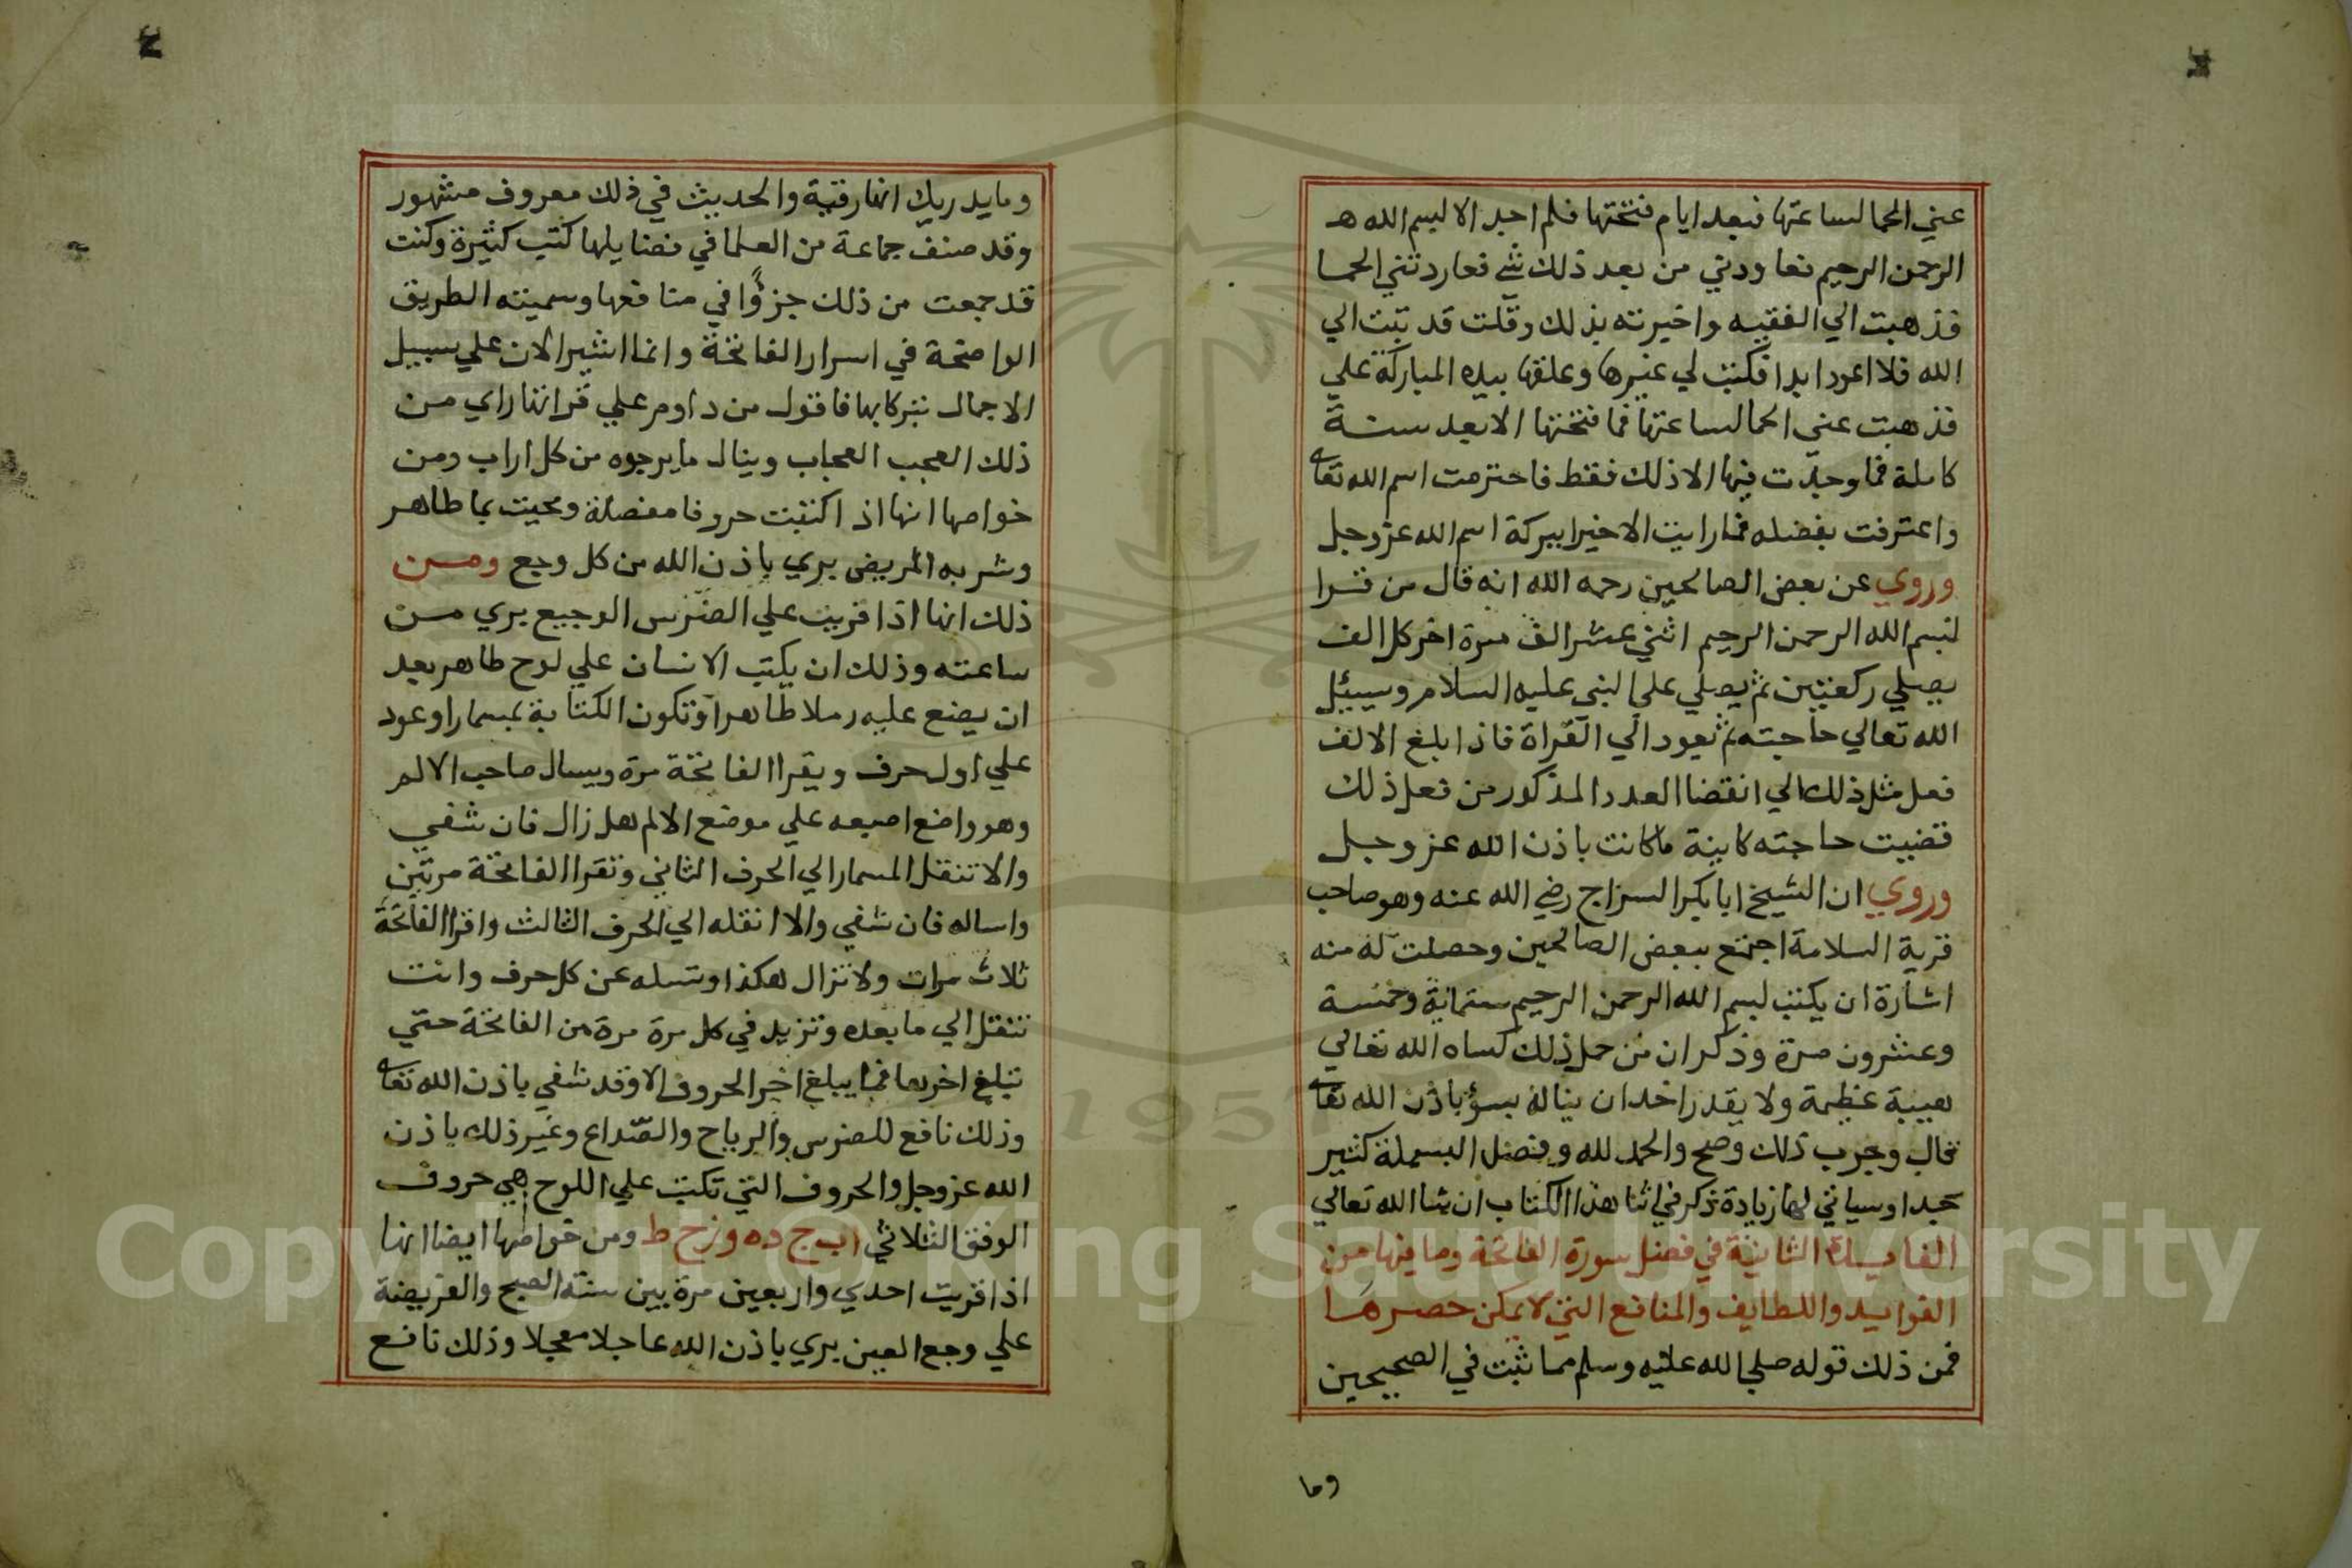 عني الحما لساعتها فبعد ايام فتحتها فلم اجد الا لبسم الله ه
الرحمن الرحيم فعاودني من بعد ذلك شي فعاردتني الحما
فذهبت الي الفقيه واخبرته بذلك وقلت قد تبت الي
الله فلا اعود ابدا فكتب لي غيرها وعلقها بيده المباركة علي
فذهبت عني الحما لساعتها فما فتحتها الا بعد سنة
كاملة فما وجدت فيها الا ذلك فقط فاحترمت اسم الله تعا
واعترفت بفضله فما رايت الا خيرا ببركة اسم الله عز وجل
وروي عن بعض الصالحين رحمه الله انه قال من قرا
لبسم الله الرحمن الرحيم اثني عشر الف مرة اخر كل الف
يصلي ركعتين ثم يصلي علي النبي عليه السلام وسيئل
الله تعالي حاجته ثم يعود الي القراة فاذا بلغ الالف
فعل مثل ذلك الي انقضا العدد المذكور من فعل ذلك
قضيت حاجته كاينة ما كانت باذن الله عز وجل
وروي ان الشيخ ابا بكر السراج رضي الله عنه وهو صاحب
قرية السلامة اجتمع ببعض الصالحين وحصلت له منه
اشارة ان يكتب لبسم الله الرحمن الرحيم ستماية وخمسة
وعشرون مرة وذكر ان من حمل ذلك كساه الله تعالي
هيبة عظيمة ولا يقدر احد ان يناله بسؤ باذن الله تعا
قال وجرب ذلك وصح والحمد لله وفضل البسملة كثير
جدا وسياتي لها زيادة ذكر في اثنا هذا الكتاب ان شا الله تعالي
الفايدة الثانية في فضل سورة الفاتحة وما فيها من
الفوايد واللطايف والمنافع التي لا يمكن حصرها
فمن ذلك قوله صلي الله عليه وسلم مما ثبت في الصحيحين
وما
وما يدريك انها رقية والحديث في ذلك معروف مشهور
وقد صنف جماعة من العلما في فضايلها كتب كثيرة وكنت
قد جمعت من ذلك جزؤا في منافعها وسميته الطريق
الواضحة في اسرار الفاتحة وانما اشير الان علي سبيل
الاجمال تبركا بها فاقول من داوم علي قراتها راي من
ذلك العجب العجاب وينال ما يرجوه من كل اراب ومن
خواصها انها اذ اكتبت حروفا مفصلة ومحيت بما طاهر
وشربه المريض بري باذن الله من كل وجع ومن
ذلك انها اذا قريت علي الضرس الوجيع بري من
ساعته وذلك ان يكتب الانسان علي لوح طاهر بعد
ان يضع عليه رملا طاهرا وتكون الكتابة بمسمار او عود
علي اول حرف ويقرا الفاتحة مرة ويسال صاحب الالم
وهو واضع اصبعه علي موضع الالم هل زال فان شفي
والا تنقل المسمار الي الحرف الثاني وتقرا الفاتحة مرتين
واساله فان شفي والا انقله الي الحرف الثالث واقرا الفاتحة
ثلاث مرات ولا تزال هكذا وتسله عن كل حرف وانت
تنقل الي ما بعده وتزيد في كل مرة مرة من الفاتحة حتي
تبلغ اخرها فما يبلغ اخر الحروف الا وقد شفي باذن الله تعا
وذلك نافع للضرس والرياح والصداع وغير ذلك باذن
الله عز وجل والحروف التي تكتب علي اللوح هي حروف
الوفق الثلاثي ا ب ج د ه و ز ح ط ومن خواصها ايضا انها
اذا قريت احدي واربعين مرة بين سنة الصبح والفريضة
علي وجع العين بري باذن الله عاجلا معجلا وذلك نافع
Copyright © King Saud University
1957